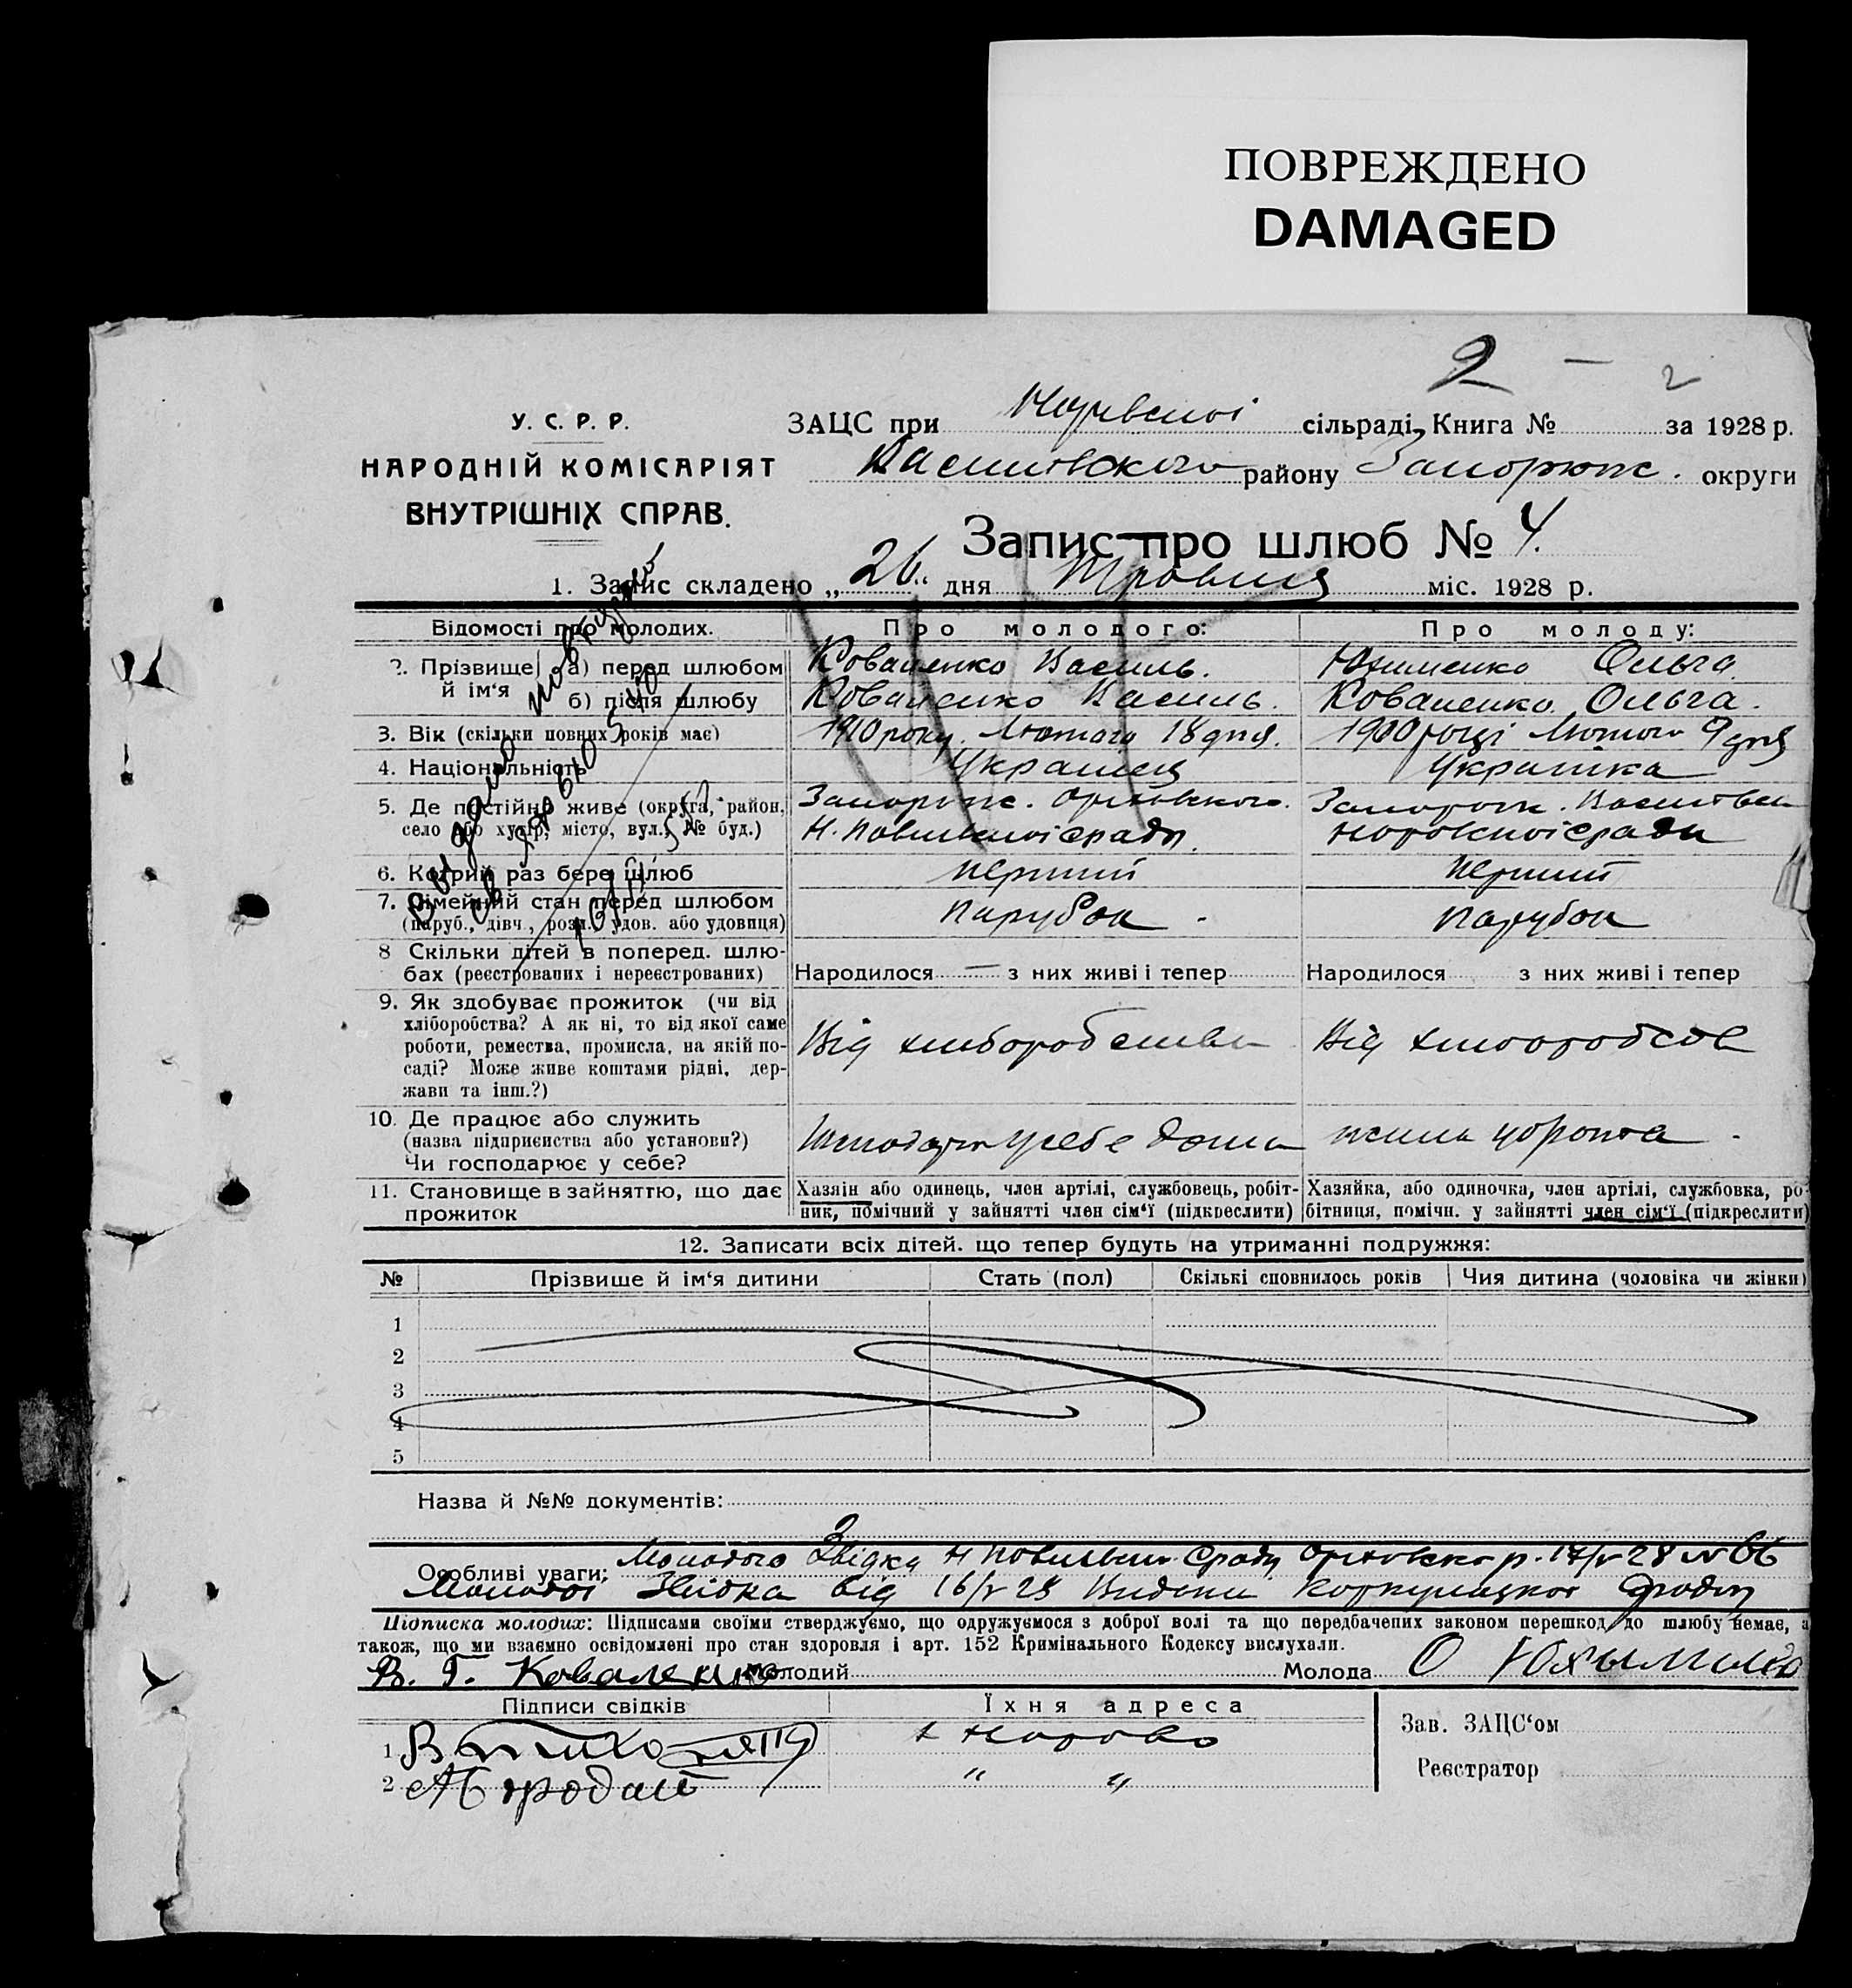 ПОВРЕЖДЕНО
DAMAGED
2 –
2
У. С. Р. Р.
НАРОДНІЙ КОМІСАРІЯТ
ВНУТРІШНІХ СПРАВ.
ЗАЦС при сільраді, Книга № за 1928 р.
району Запоріж. округи
Запис про шлюб № 4.
1. Запис складено „26“ дня Травня міс. 1928 р.
Відомості про молодих.
Про молодого:
Про молоду:
2. Прізвище й ім'я
а) перед шлюбом
Коваленко Василь.
Ольга.
б) після шлюбу
Коваленко Василь.
Коваленко Ольга.
3. Вік (скільки повних років має)
1910 року. Лютого 18 дня.
Лютого 9 дня
4. Національність
Українець
Українка
5. Де постійно живе (округа, район,
село або хутір, місто, вул., № буд.)
Запоріж. Оріховського.
Н. Павлівської с/ради.
Запоріж. Василівськ
с/ради
6. Котрий раз бере шлюб
перший
перший
7. Сімейний стан перед шлюбом
(паруб., дівч., розл. удов. або удовиця)
парубок.
парубок
8 Скільки дітей в поперед. шлю-
бах (реєстрованих і нереєстрованих)
Народилося — з них живі і тепер
Народилося з них живі і тепер
9. Як здобуває прожиток (чи від
хліборобства? А як ні, то від якої саме
роботи, ремества, промисла, на якій по-
саді? Може живе коштами рідні, дер-
жави та інш.?)
Від хліборобства
Від
10. Де працює або служить
(назва підприєиства або установи?)
Чи господарює у себе?
у себе дома
11. Становище в зайняттю, що дає
прожиток
Хазяін або одинець, член артілі, службовець, робіт-
ник, помічний у зайнятті член сім'ї (підкреслити)
Хазяйка, або одиночка, член артілі, службовка, ро-
бітниця, помічн. у зайнятті член сім'ї (підкреслити)
12. Записати всіх дітей. що тепер будуть на утриманні подружжя:
№ Прізвише й ім'я дитини Стать (пол) Скількі сповнилось років Чия дитина (чоловіка чи жінки)
1
2
3
4
5
Назва й №№ документів:
Особливі уваги: Молодого Звідка Н Павлівськ. с/ради Оріховськ р. 17/V 28 N 66
Молодої Звідка від 16/V 28 Видана с/ради
Підписка молодих: Підписами своїми стверджуємо, що одружуємося з доброї волі та що передбачених законом перешкод до шлюбу немає, а
також, що ми взаємно освідомлені про стан здоровля і арт. 152 Кримінального Кодексу вислухали.
В. Г. Коваленко Молодий Молода О
Підписи свідків
Їхня адреса
1
2
„ „
Зав. ЗАЦС'ом
Реєстратор
Видано повторно